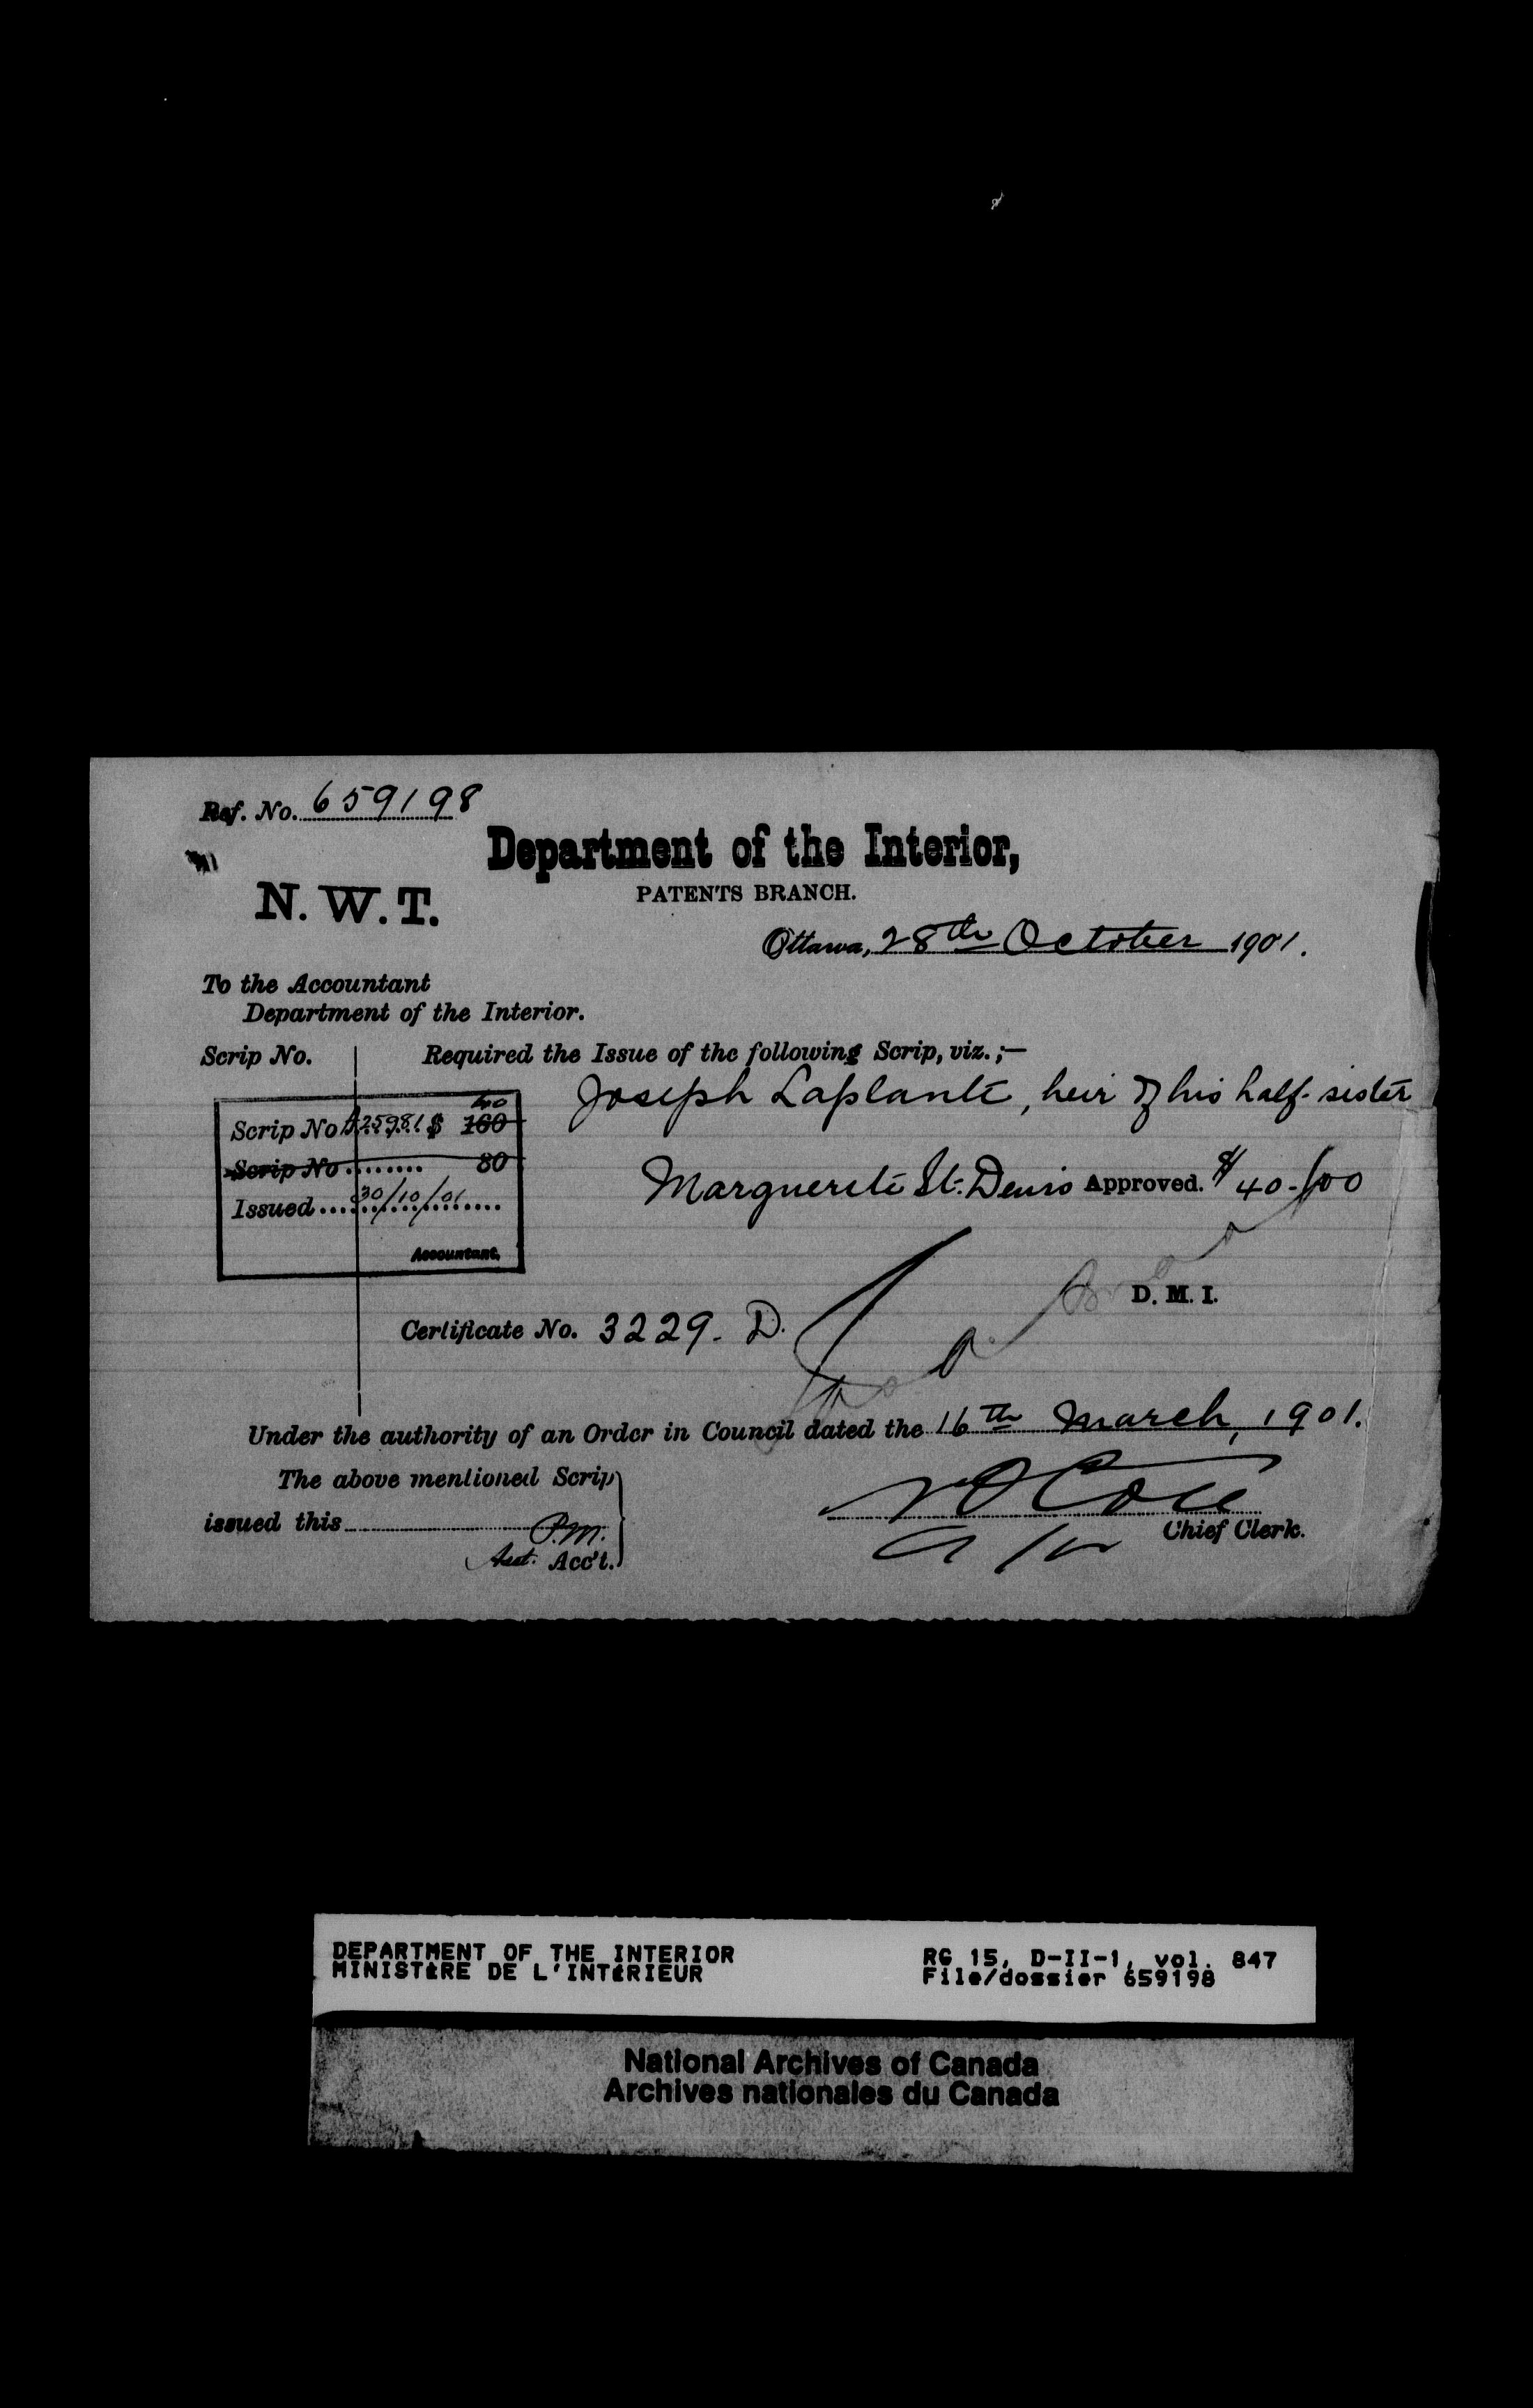 Ref. No. 659198
Department of the Interior,
N. W. T.
PATENTS BRANCH.
Ottawa, 28th October 1901.
To the Accountant
Department of the Interior.
Scrip No. Required the Issue of the following Scrip, viz. ;—
Joseph Laplante, heir of his half-sister
40
Scrip No. A25981 $ 160
Scrip No ........ 80
Marguerite St. Denis Approved. $40.00
Issued 30/10/01
Accountant.
D. M. I.
Certificate No. 3229. D.
Under the authority of an Order in Council dated the 16th March, 1901.
The above mentioned Scrip
issued this P.M.
Asst. Acc't.
N O Coté
Chief Clerk.
DEPARTMENT OF THE INTERIOR
MINISTÈRE DE L'INTÉRIEUR
RG 15, D-II-1, vol. 847
File/dossier 659198
National Archives of Canada
Archives nationales du Canada